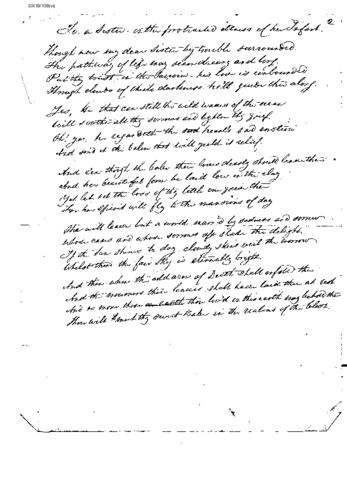 2
To a Sister on the protracted illness of her Infant.
Though now my dear Sister by trouble surrounded
The pathway of life may seem dreary and long
Put thy trust in the Saviour, his love is unbounded
Though clouds of thick darkness he'll guide thee along.
Yes, He that can still the wild waves of the
Will soothe all thy sorrows and lighten thy grief
Oh! yes, he regardeth the heart's sad emotion
And send it the balm that will yield it relief.
And even though the babe thou lovest dearly should leave thee
And her beautiful form be laid low in the clay
Yet let not the loss of thy little one grieve thee
For her Spirit will fly to the mansions of day
She will leave but a world marr'd by sadness and sorrow
whose cares and whose sorrows o'er shade the delight.
If the sun shines to day cloudy skies veil the morrow
Whilst there the fair sky is eternally bright.
And then when the cold arm of Death shall enfold thee
And the mourners their leaves shall have laid thee at rest
And no more those thou lov'd on this earth may behold thee
Thou wilt meet thy sweet babe in the realms of the blest.